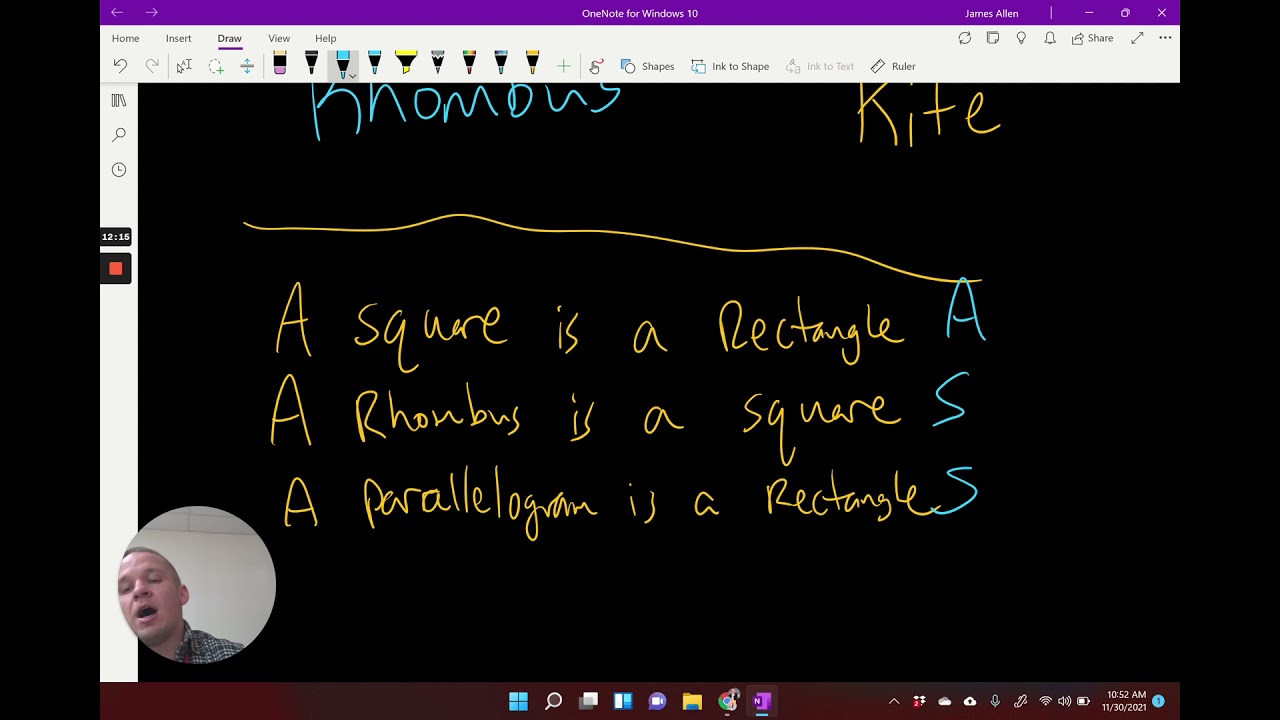 OneNote for Windows 10
James Allen
Home Insert Draw View Help
Share
Shapes Ink to Shape Ink to Text Ruler
Rhombus Kite
12:15
A square is a Rectangle A
A Rhombus is a square S
A parallelogram is a Rectangle S
10:52 AM
11/30/2021
1